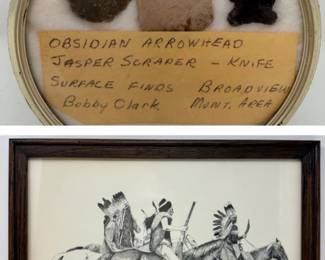 OBSIDIAN ARROWHEAD
JASPER SCRAPER - KNIFE
SURFACE FINDS BROADVIEW
Bobby Clark MONT. AREA